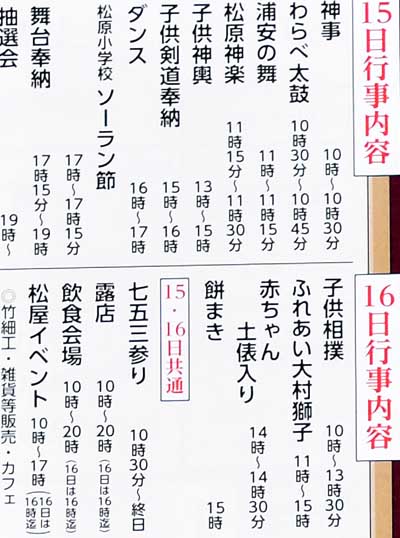 15日行事内容
神事 10時～10時30分
わらべ太鼓 10時30分～10時45分
浦安の舞 11時～11時15分
松原神楽 11時15分～11時30分
子供神輿 13時～15時
子供剣道奉納 15時～16時
ダンス 16時～17時
松原小学校 ソーラン節 17時～17時15分
舞台奉納 17時15分～19時
抽選会 19時～
16日行事内容
子供相撲 10時～13時30分
ふれあい大村獅子 11時～15時
赤ちゃん土俵入り 14時～14時30分
餅まき 15時
15・16日共通
七五三参り 10時30分～終日
露店 10時～20時(16日は16時迄)
飲食会場 10時～20時(16日は16時迄)
松屋イベント 10時～17時(16日は16時迄)
◎竹細工・雑貨等販売・カフェ